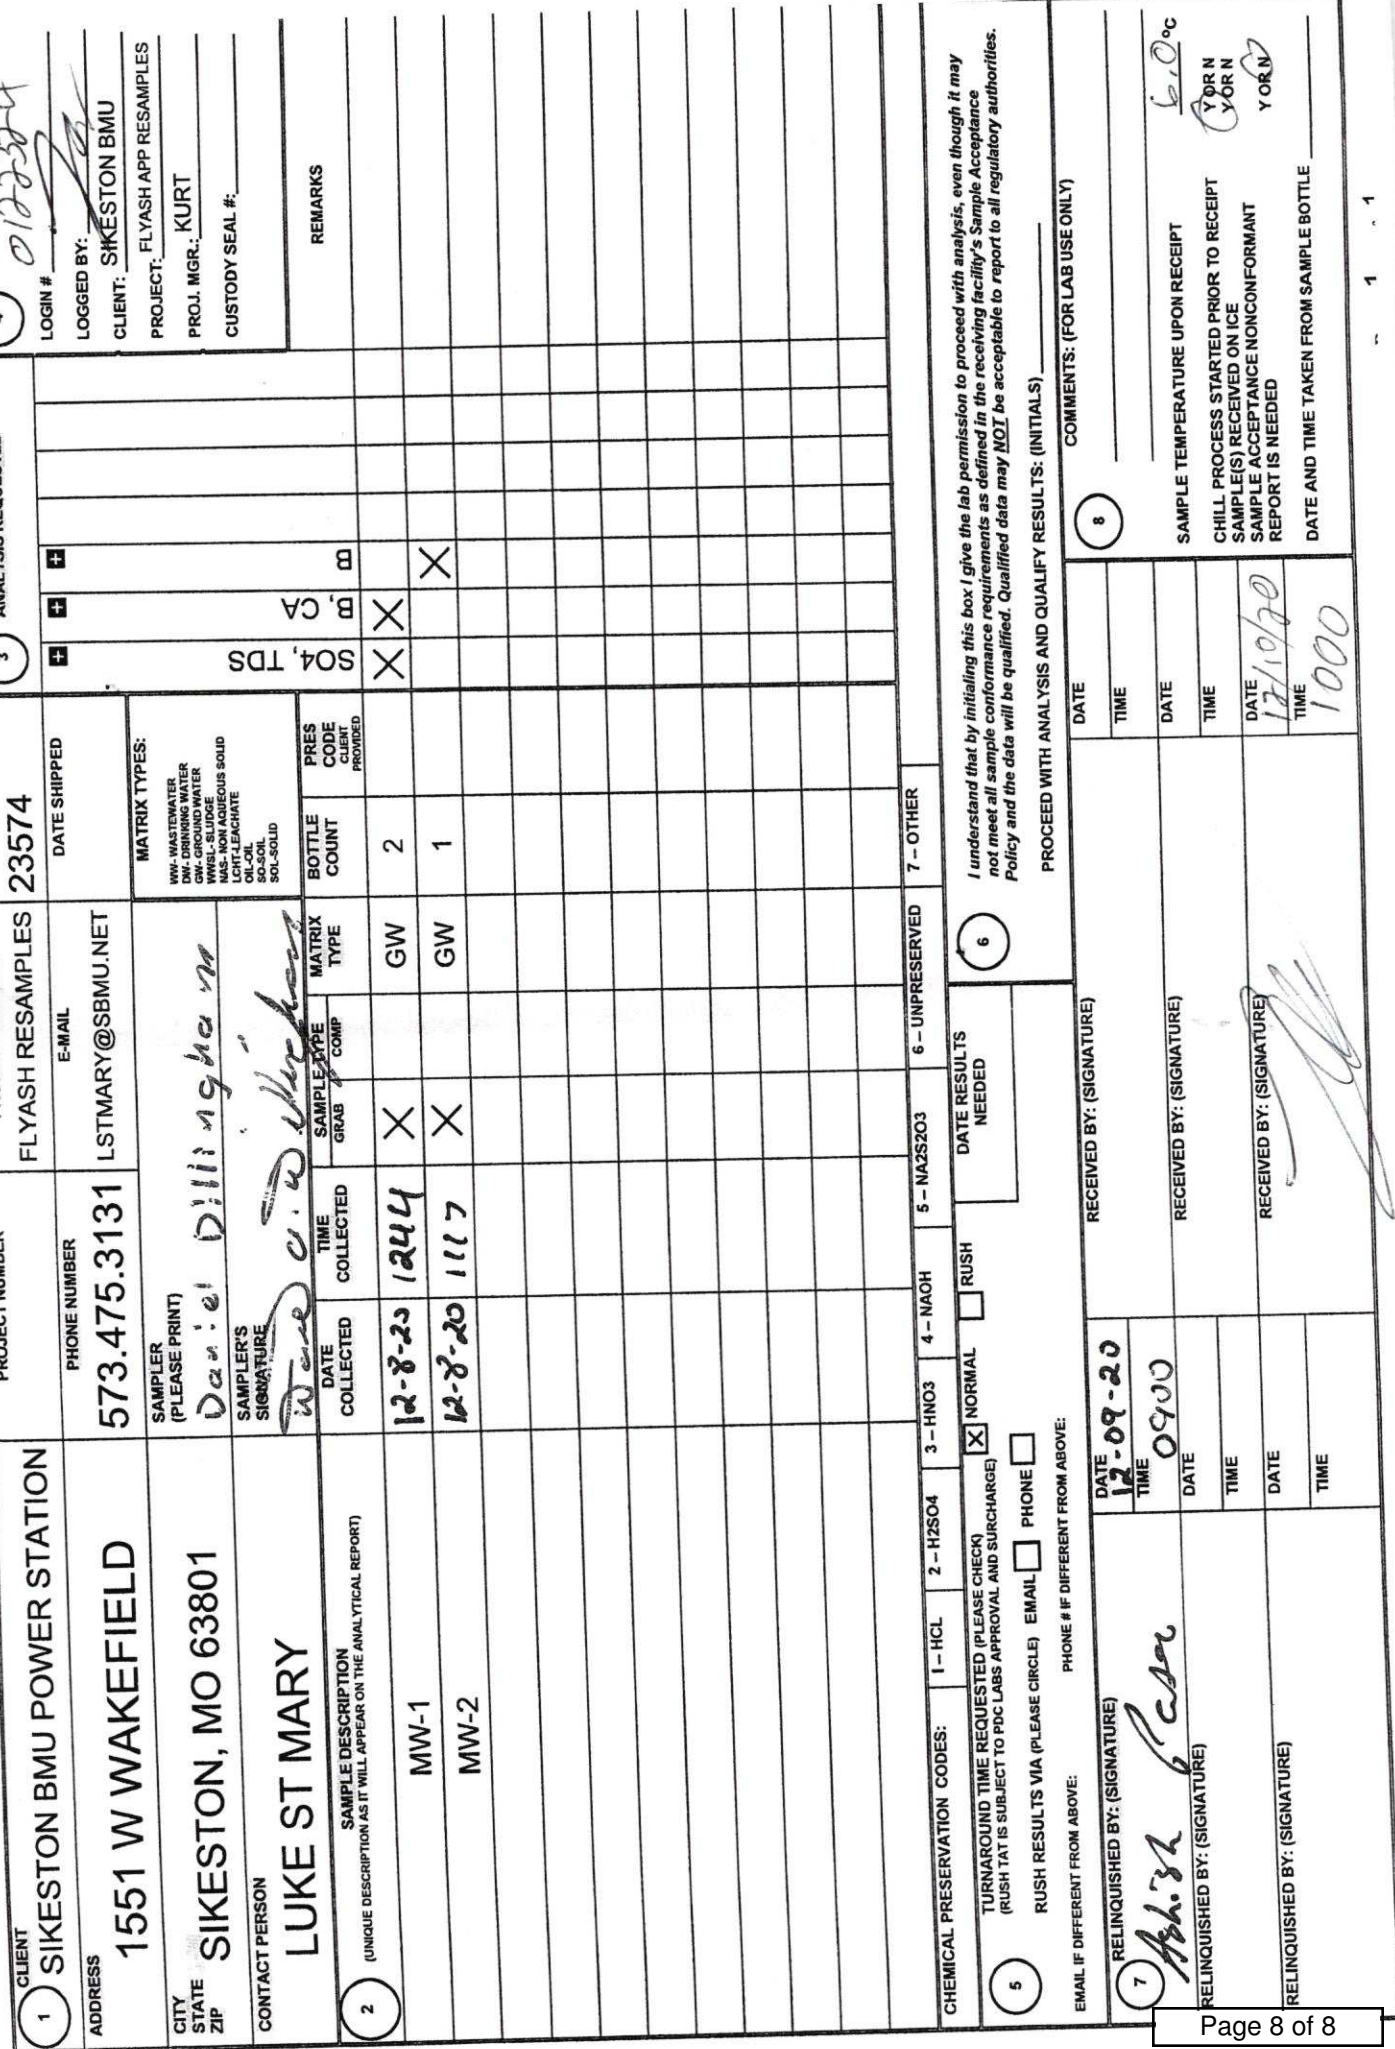 1 CLIENT
SIKESTON BMU POWER STATION
PROJECT NUMBER
FLYASH RESAMPLES
23574
ADDRESS
1551 W WAKEFIELD
PHONE NUMBER
573.475.3131
E-MAIL
LSTMARY@SBMU.NET
DATE SHIPPED
CITY
STATE
ZIP
SIKESTON, MO 63801
SAMPLER
(PLEASE PRINT)
Daniel Dillingham
SAMPLER'S
SIGNATURE
CONTACT PERSON
LUKE ST MARY
MATRIX TYPES:
WW- WASTEWATER
DW- DRINKING WATER
GW- GROUND WATER
WWSL- SLUDGE
NAS- NON AQUEOUS SOLID
LCHT-LEACHATE
OIL-OIL
SO-SOIL
SOL-SOLID
3 ANALYSIS REQUESTED
SO4, TDS
B, CA
B
LOGIN #
LOGGED BY:
CLIENT: SIKESTON BMU
PROJECT: FLYASH APP RESAMPLES
PROJ. MGR.: KURT
CUSTODY SEAL #:
2 SAMPLE DESCRIPTION
(UNIQUE DESCRIPTION AS IT WILL APPEAR ON THE ANALYTICAL REPORT)
DATE COLLECTED
TIME COLLECTED
SAMPLE TYPE
GRAB COMP
MATRIX TYPE
BOTTLE COUNT
PRES CODE CLIENT PROVIDED
REMARKS
MW-1 12-8-20 1244 X GW 2 X X
MW-2 12-8-20 1117 X GW 1 X
CHEMICAL PRESERVATION CODES: 1 – HCL 2 – H2SO4 3 – HNO3 4 – NAOH 5 – NA2S2O3 6 – UNPRESERVED 7 – OTHER
5 TURNAROUND TIME REQUESTED (PLEASE CHECK) X NORMAL RUSH
(RUSH TAT IS SUBJECT TO PDC LABS APPROVAL AND SURCHARGE)
DATE RESULTS
NEEDED
RUSH RESULTS VIA (PLEASE CIRCLE) EMAIL PHONE
EMAIL IF DIFFERENT FROM ABOVE: PHONE # IF DIFFERENT FROM ABOVE:
6 I understand that by initialing this box I give the lab permission to proceed with analysis, even though it may
not meet all sample conformance requirements as defined in the receiving facility's Sample Acceptance
Policy and the data will be qualified. Qualified data may NOT be acceptable to report to all regulatory authorities.
PROCEED WITH ANALYSIS AND QUALIFY RESULTS: (INITIALS)
7 RELINQUISHED BY: (SIGNATURE)
DATE
12-09-20
TIME
0900
RECEIVED BY: (SIGNATURE)
DATE
TIME
RELINQUISHED BY: (SIGNATURE)
DATE
TIME
RECEIVED BY: (SIGNATURE)
DATE
TIME
RELINQUISHED BY: (SIGNATURE)
DATE
TIME
RECEIVED BY: (SIGNATURE)
DATE
12/10/20
TIME
1000
8 COMMENTS: (FOR LAB USE ONLY)
SAMPLE TEMPERATURE UPON RECEIPT 6.0 °C
CHILL PROCESS STARTED PRIOR TO RECEIPT Y OR N
SAMPLE(S) RECEIVED ON ICE Y OR N
SAMPLE ACCEPTANCE NONCONFORMANT
REPORT IS NEEDED Y OR N
DATE AND TIME TAKEN FROM SAMPLE BOTTLE
1 1
Page 8 of 8